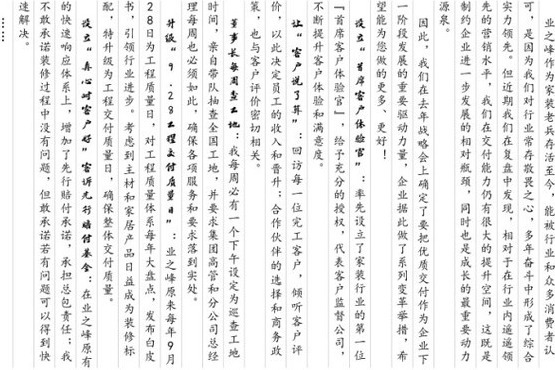 业之峰作为家装老兵存活至今，能被行业和众多消费者认
可，是因为我们对行业常存敬畏之心，多年奋斗中形成了综合
实力领先。但近期我们在复盘中发现，相对于在行业内遥遥领
先的营销水平，我们在交付能力仍有很大的提升空间，这既是
制约企业进一步发展的相对瓶颈，同时也是成长的最重要动力
源泉。
因此，我们在去年战略会上确定了要把优质交付作为企业下
一阶段发展的重要驱动力量，企业据此做了系列变革举措，希
望能为您做的更多、更好！
设立“首席客户体验官”：率先设立了家装行业的第一位
『首席客户体验官』，给予充分的授权，代表客户监督公司，
不断提升客户体验和满意度。
让“客户说了算”：回访每一位完工客户，倾听客户评
价，以此决定员工的收入和晋升；合作伙伴的选择和商务政
策，也与客户评价密切相关。
董事长每周查工地：我每周必有一个下午设定为巡查工地
时间，亲自带队抽查全国工地，并要求集团高管和分公司总经
理每周也必须如此，确保各项服务和要求落到实处。
升级“9.28工程交付质量日”：业之峰原来每年9月
28日为工程质量日，对工程质量体系每年大盘点，发布白皮
书，引领行业进步。考虑到主材和家居产品日益成为装修标
配，特升级为工程交付质量日，确保整体交付质量。
设立“真心对客户好”客诉先行赔付基金：在业之峰原有
的快速响应体系上，增加了先行赔付承诺，承担总包责任；我
不敢承诺装修过程中没有问题，但敢承诺若有问题可以得到快
速解决。
……